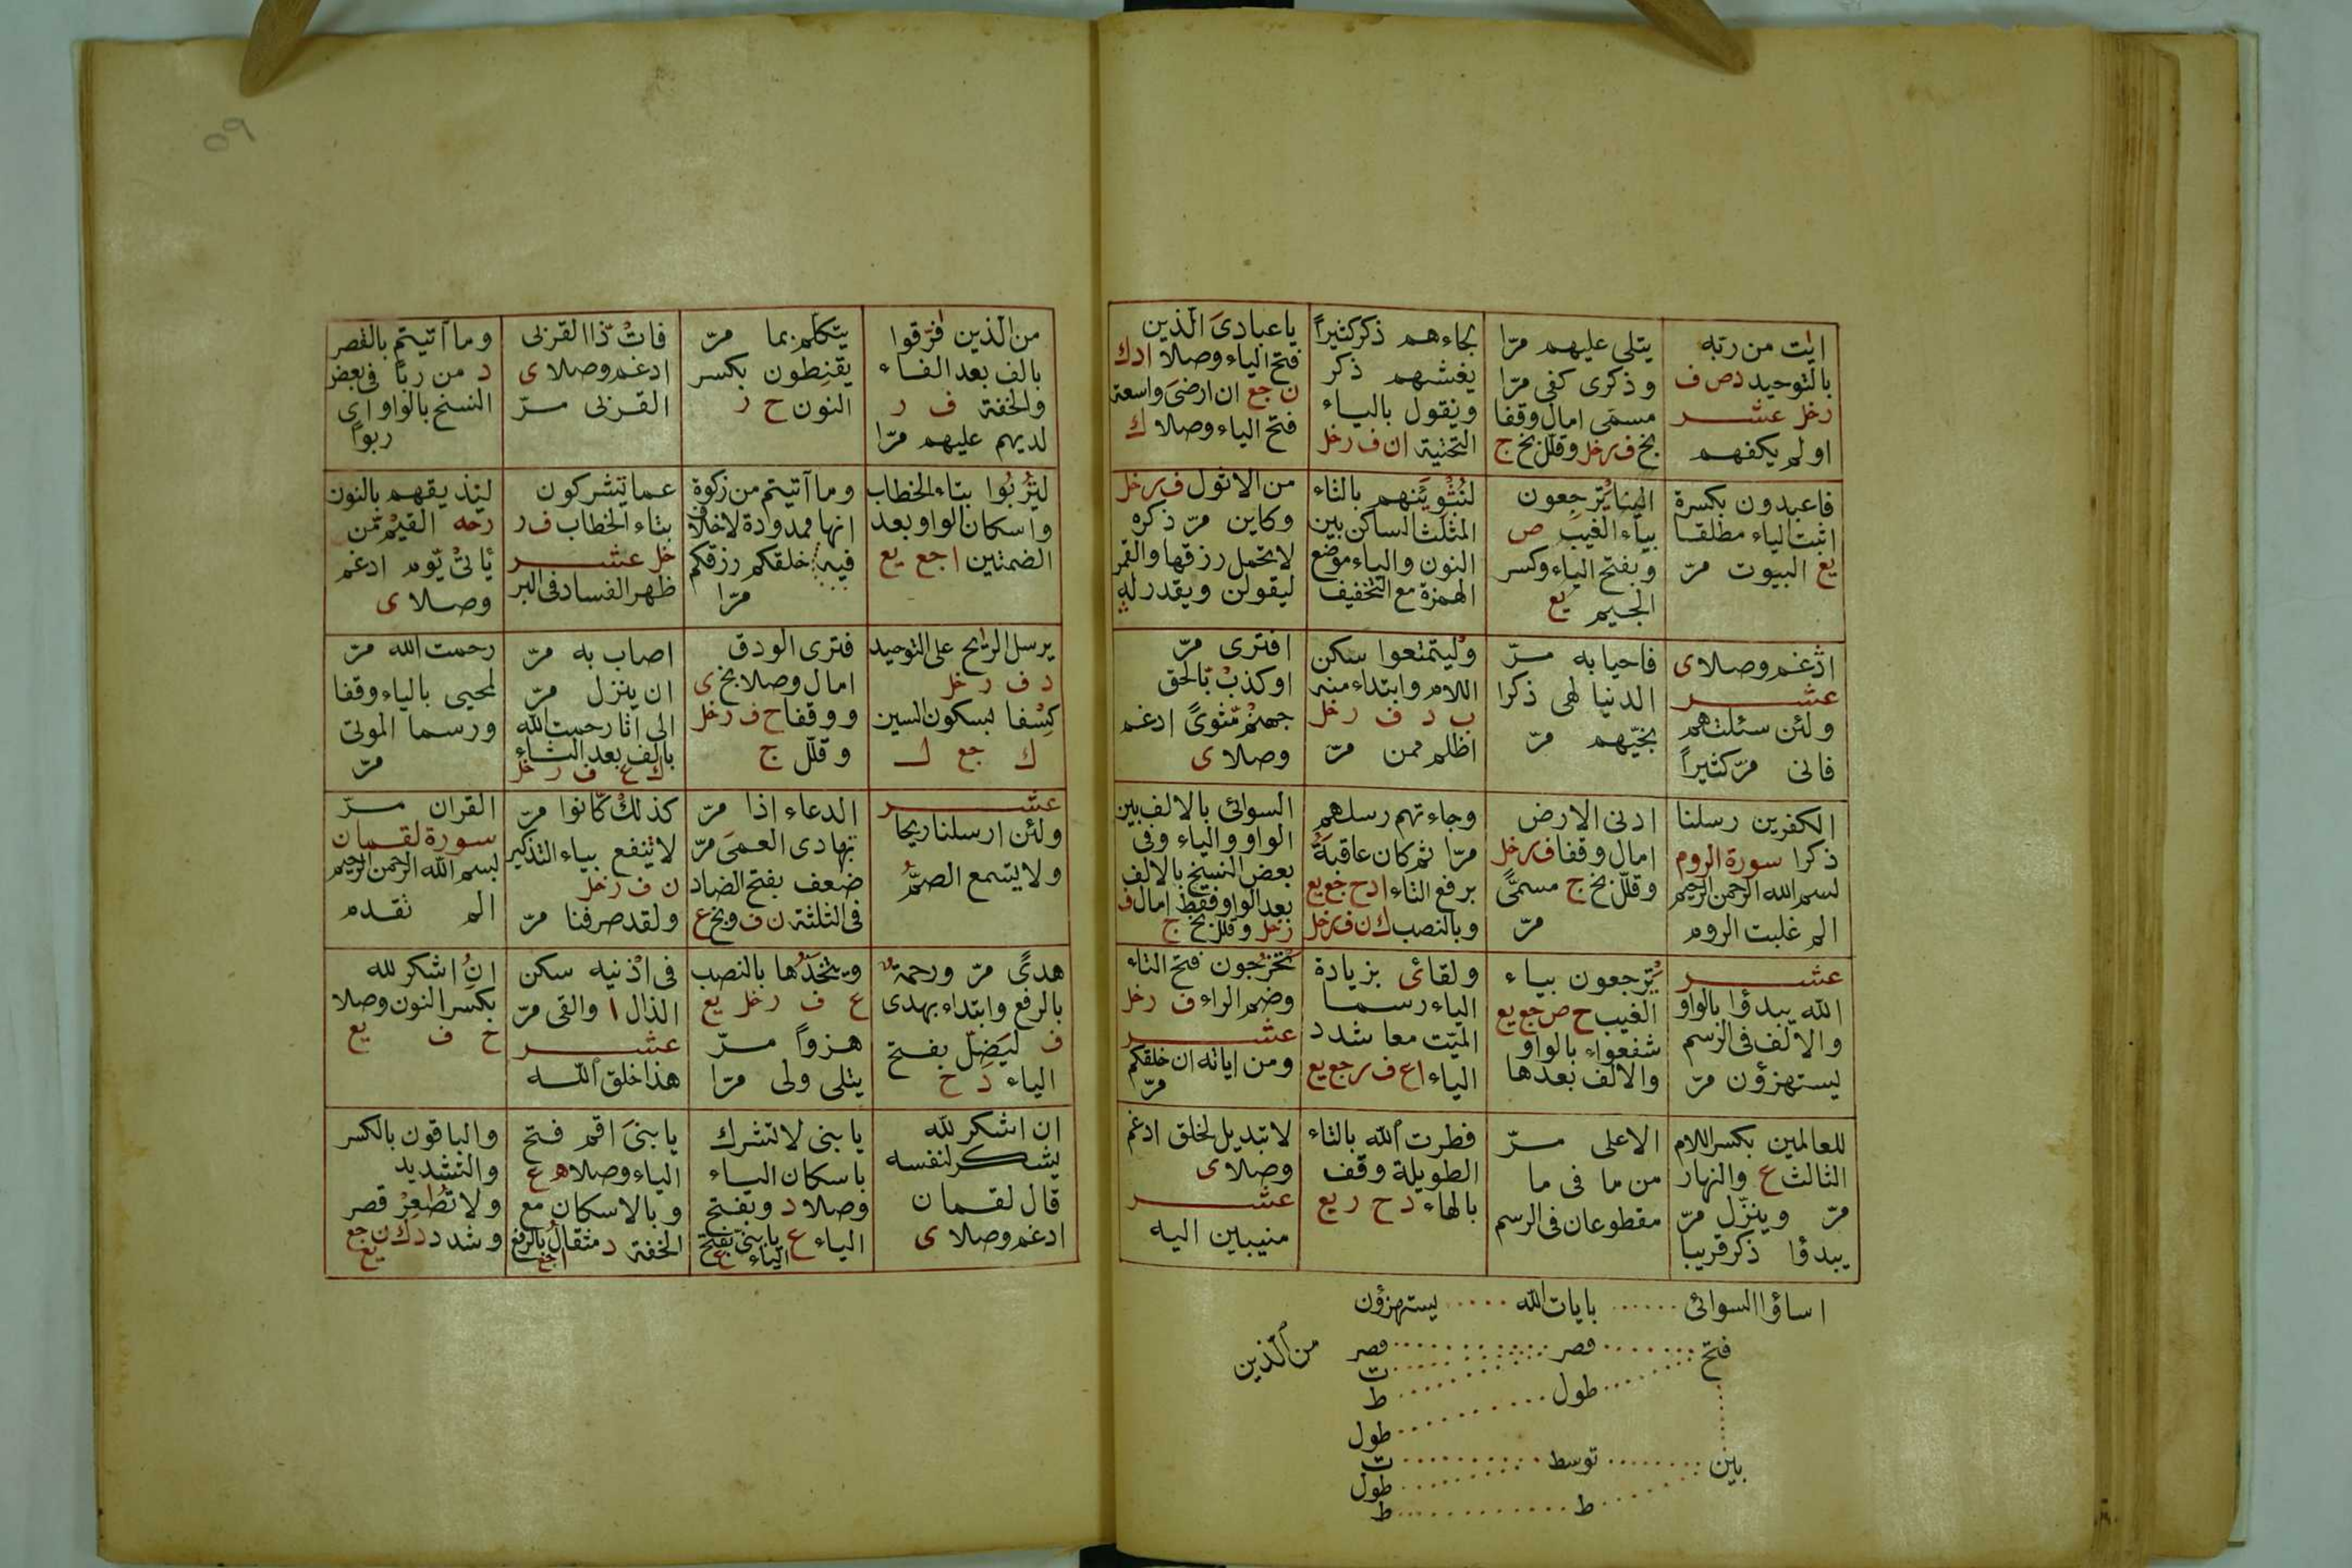 ايت من ربه
بالتوحيد دص ف
رخل عشر
اولم يكفهم
يتلى عليهم مرّا
وذكرى كفى مرّا
مسمّى امال وقفا
بخ ف رخل وقلل بخ ج
بجاءهم ذكر كثيراً
يغشهم ذكر
ونقول بالياء
التحتية ان ف رخل
ياعبادىَ الّذين
فتح الياء وصلا ادك
ن جع ان ارضىَ واسعة
فتح الياء وصلا ك
فاعبدون بكسرة
اثبت الياء مطلقا
يع البيوت مرّ
الينا يُترجعون
بياء الغيب ص
وبفتح الياء وكسر
الجيم يع
لنُثْوِيَنهم بالثاء
المثلث الساكن بين
النون والياء موضع
الهمزة مع التخفيف
من الاتول ف رخل
وكاين مرّ ذكره
لا تحمل رزقها والقمر
ليقولن ويقدر له
ادغم وصلا ى
عشر
ولئن سئلتهم
فانى مرّ كثيراً
فاحيا به مرّ
الدنيا لهى ذكرا
نجّيهم مرّ
وليتمتعوا سكن
اللام وابتداء منه
ب د ف رخل
اظلم ممن مرّ
افترى مرّ
اوكذبْ بّالحق
جهنمْ مّثوىً ادغم
وصلا ى
الكفرين رسلنا
ذكرا سورة الروم
بسم الله الرحمن الرحيم
الم غلبت الروم
ادنى الارض
امال وقفا ف رخل
وقلّل بخ ج مسمىًّ
مرّ
وجاءتهم رسلهم
مرّا ثم كان عاقبةُ
برفع التاء ادح جع يع
وبالنصب ك ن ف رخل
السوائى بالالف بين
الواو والياء وفى
بعض النسخ بالالف
بعد الواو فقط امال ف
رخل وقلل بخ ج
عشر
الله يبدؤا بالواو
والالف فى الرسم
يستهزؤن مرّ
يُترجعون بياء
الغيب ح ص جع يع
شفعواء بالواو
والالف بعدها
ولقائ بزيادة
الياء رسما
الميّت معا شدد
الياء اع ف رجع يع
تخرجون فتح التاء
وضم الراء ف رخل
عشر
ومن اياته ان خلقكم
مرّ
للعالمين بكسر اللام
الثالث ع والنهار
مرّ وينزّل مرّ
يبدؤا ذكر قريبا
الاعلى مرّ
من ما فى ما
مقطوعان فى الرسم
فطرت الله بالتاء
الطويلة وقف
بالهاء دح ريع
لا تبديل لخلق ادغم
وصلا ى
عشر
منيبين اليه
اساؤا السوائى بايات الله يستهزؤن
فتح قصر قصر
ت
ط
طول
طول
بين توسط ت
طول
ط ط
من الّذين
٥٩
من الّذين فرّقوا
بالف بعد الفاء
والخفة ف ر
لديهم عليهم مرّا
يتكلم بما مرّ
يقنطون بكسر
النون ح ر
فاتْ ذّا القربى
ادغم وصلا ى
القربى مرّ
وما اتيتم بالقصر
د من رباً فى بعض
النسخ بالواو اى
ربواً
لِتُرْبُوا بتاء الخطاب
واسكان الواو بعد
الضمتين اجع يع
وما آتيتم من زكوة
انها ممدودة لا خلاف
فيه خلقكم رزقكم
مرّا
عما يتشركون
بتاء الخطاب ف ر
خل عشر
ظهر الفساد فى البر
لينذيقهم بالنون
رحه القيمْ مّن
يأتىْ يّوم ادغم
وصلا ى
يرسل الريٰح على التوحيد
د ف رخل
كِسْفا بسكون السين
ك جع ل
فترى الودق
امال وصلا بخ ى
ووقفا ح ف رخل
وقلّل ج
اصاب به مرّ
ان ينزل مرّ
الى اثارحمت الله
بالف بعد الثاء
ك ع ف رخل
رحمت الله مرّ
لمحيى بالياء وقفا
ورسما الموتى
مرّ
عشر
ولئن ارسلنا ريحا
ولا يتسمع الصمُّ
الدعاء اذا مرّ
تهادى العمىَ مرّ
ضعف بفتح الضاد
فى الثلثة ن ف وبخ ع
كذلكْ كّانوا مرّ
لا يتنفع بياء التذكير
ن ف رخل
ولقد صرفنا مرّ
القران مرّ
سورة لقمان
بسم الله الرحمن الرحيم
الم تقدم
هدىً مرّ ورحمةٌ
بالرفع وابتداء بهدى
ف ليَضِلّ بفتح
الياء دح
ويتخذَُها بالنصب
ع ف رخل يع
هزواً مرّ
يتلى ولى مرّا
فى اذْنيه سكن
الذال ا والقى مرّ
عشر
هذا خلق الله
انِ اشكر لله
بكسر النون وصلا
ح ف يع
ان اشكر لله
يشكر لنفسه
قال لقمان
ادغم وصلا ى
يا بنى لا تشرك
باسكان الياء
وصلا د وبفتح
الياء ع يا بنىّ بفتح
الياء ع
يا بنىَ اقم فتح
الياء وصلا ه ع
وبالاسكان مع
الخفة د مثقالُ بالرفع
اجع
والباقون بالكسر
والتشديد
ولا تصٰعِرْ قصر
وشدد دك ن جع
يع